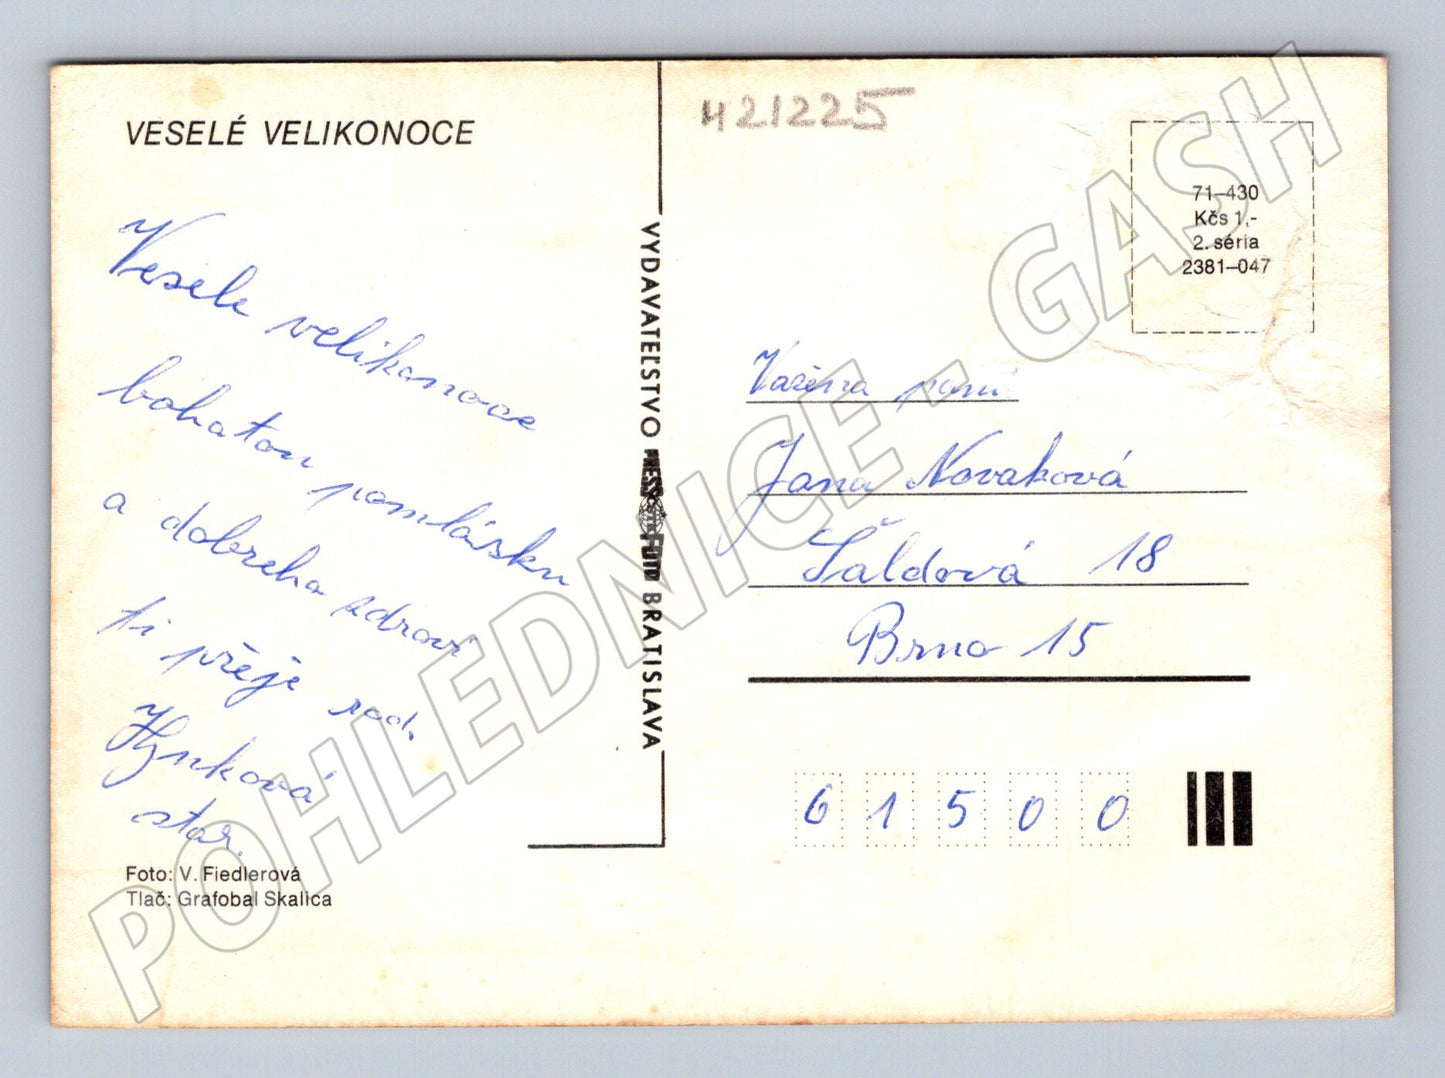 VESELÉ VELIKONOCE
Vesele velikonoce
bohatou pomlásku
a dobreho zdraví
ti přeje rod.
Hynková
star.
Foto: V. Fiedlerová
Tlač: Grafobal Skalica
VYDAVATEĽSTVO PRESSFOTO BRATISLAVA
421225
71–430
Kčs 1,-
2. séria
2381–047
Vážena paní
Jana Novaková
Šaldová 18
Brno 15
6 1 5 0 0
POHLEDNICE - GASH